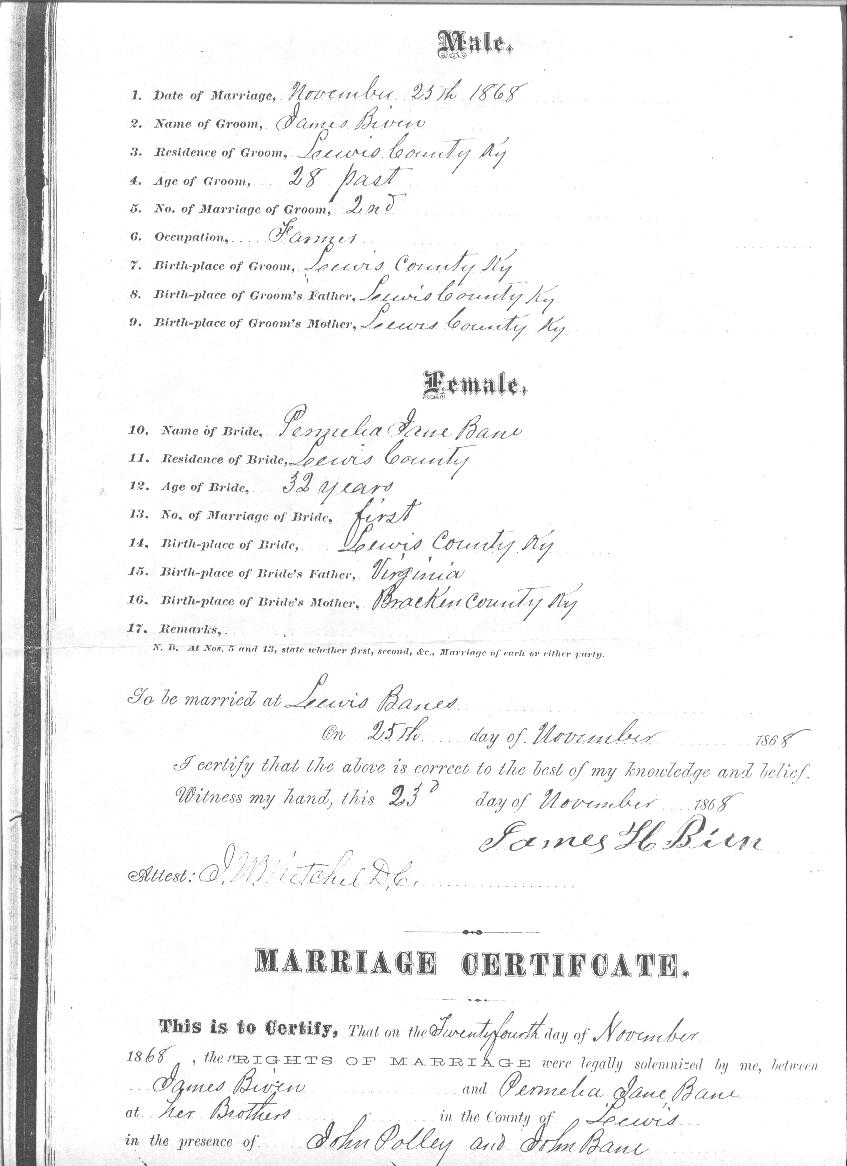 Male.
1. Date of Marriage, November 25th 1868
2. Name of Groom, James Biven
3. Residence of Groom, Lewis County Ky
4. Age of Groom, 28 past
5. No. of Marriage of Groom, 2nd
6. Occupation, Farmer
7. Birth-place of Groom, Lewis County Ky
8. Birth-place of Groom's Father, Lewis County Ky
9. Birth-place of Groom's Mother, Lewis County Ky
Female.
10. Name of Bride, Permelia Jane Bane
11. Residence of Bride, Lewis County
12. Age of Bride, 32 years
13. No. of Marriage of Bride, first
14. Birth-place of Bride, Lewis County Ky
15. Birth-place of Bride's Father, Virginia
16. Birth-place of Bride's Mother, Bracken County Ky
17. Remarks,
N. B. At Nos. 5 and 13, state whether first, second, &c., Marriage of each or either party.
To be married at Lewis Banes
On 25th day of November 1868
I certify that the above is correct to the best of my knowledge and belief.
Witness my hand, this 23d day of November 1868
James H
Attest: Mitchel D.C.
MARRIAGE CERTIFCATE.
This is to Certify, That on the Twentyfourth day of November
1868, the RIGHTS OF MARRIAGE were legally solemnized by me, between
James Biven and Permelia Jane Bane
at her Brothers in the County of Lewis
in the presence of John Polley and John Bane